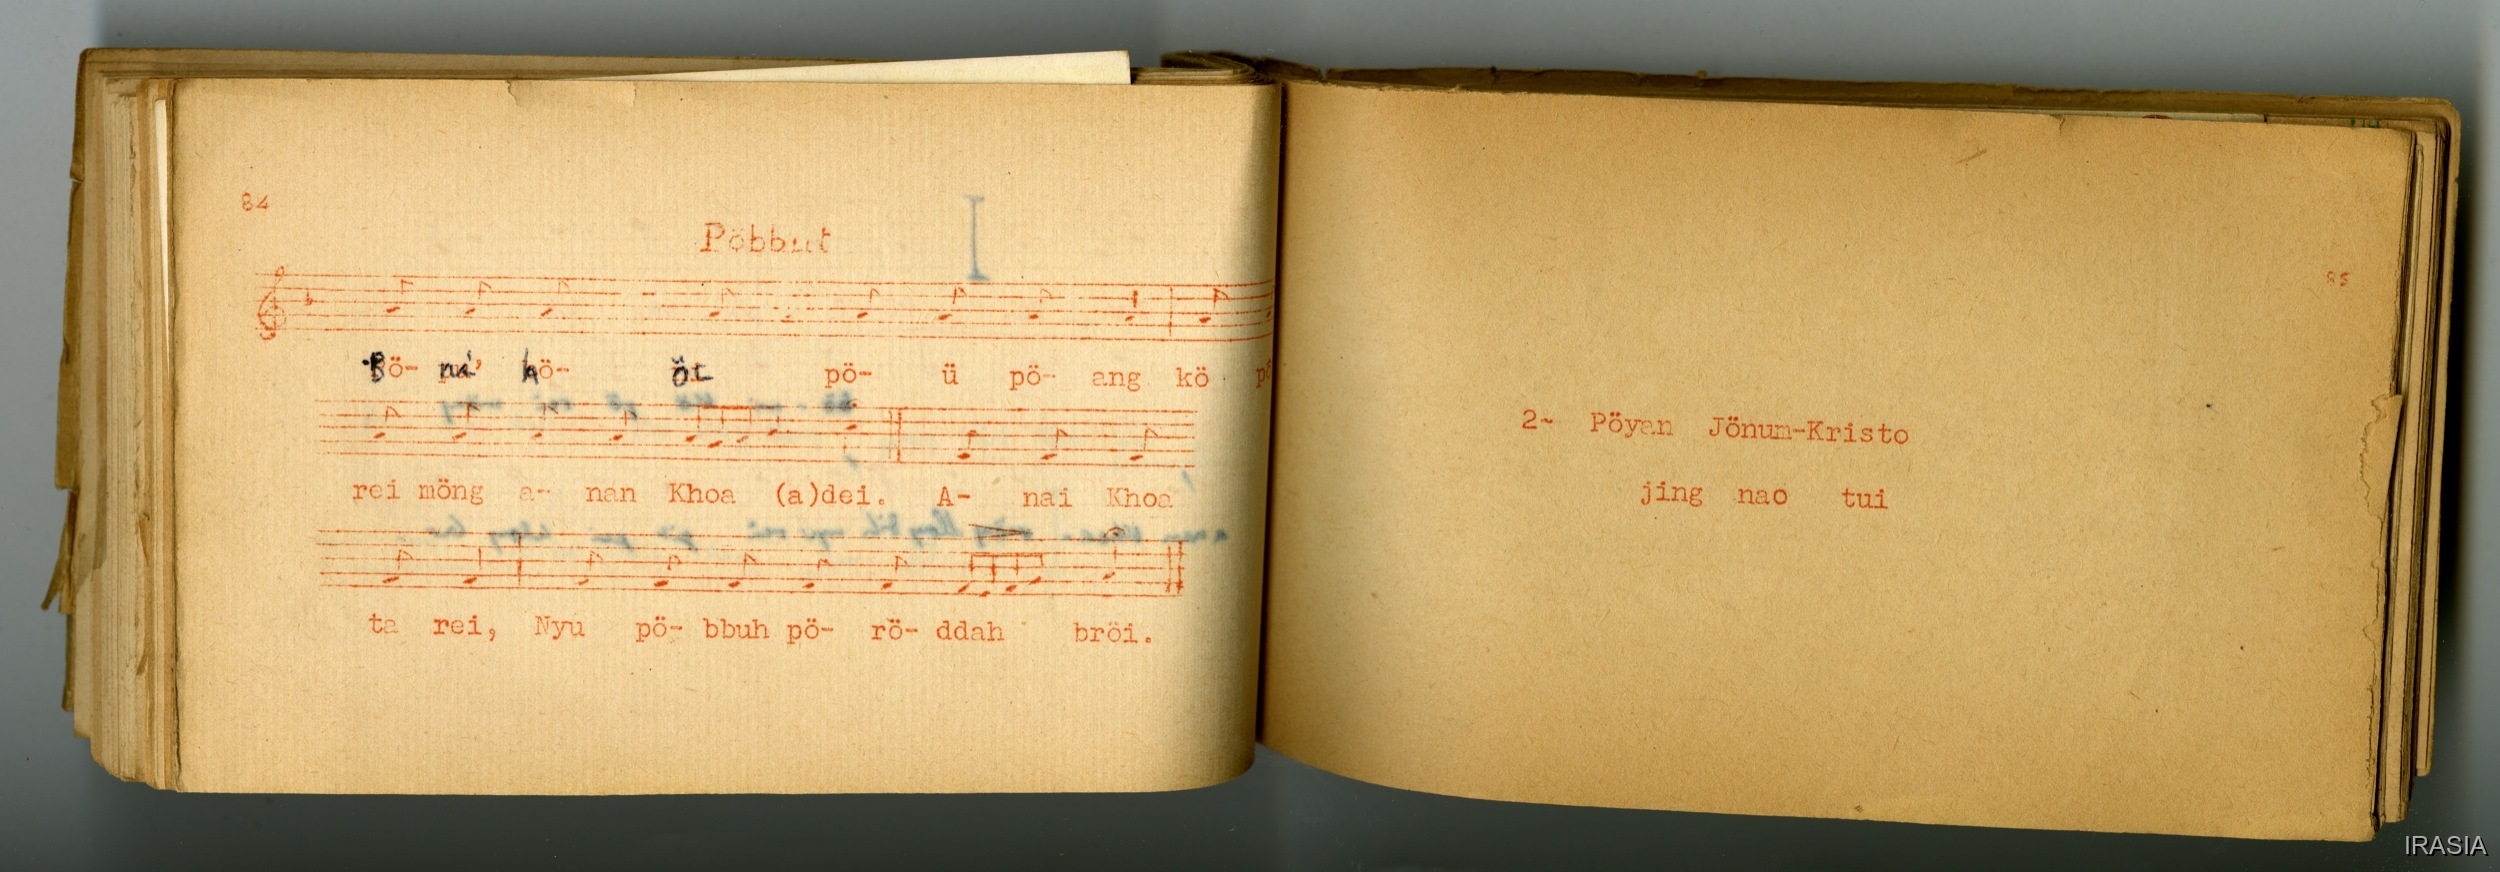 84
Pöbbut
Bö- nu' hö- öt pö- ü pö- ang kö pö
rei möng a- nan Khoa (a)dei. A- nai Khoa
ta rei, Nyu pö- bbuh pö- rö- ddah bröi.
85
2- Pöyan Jönum-Kristo
jing nao tui
IRASIA